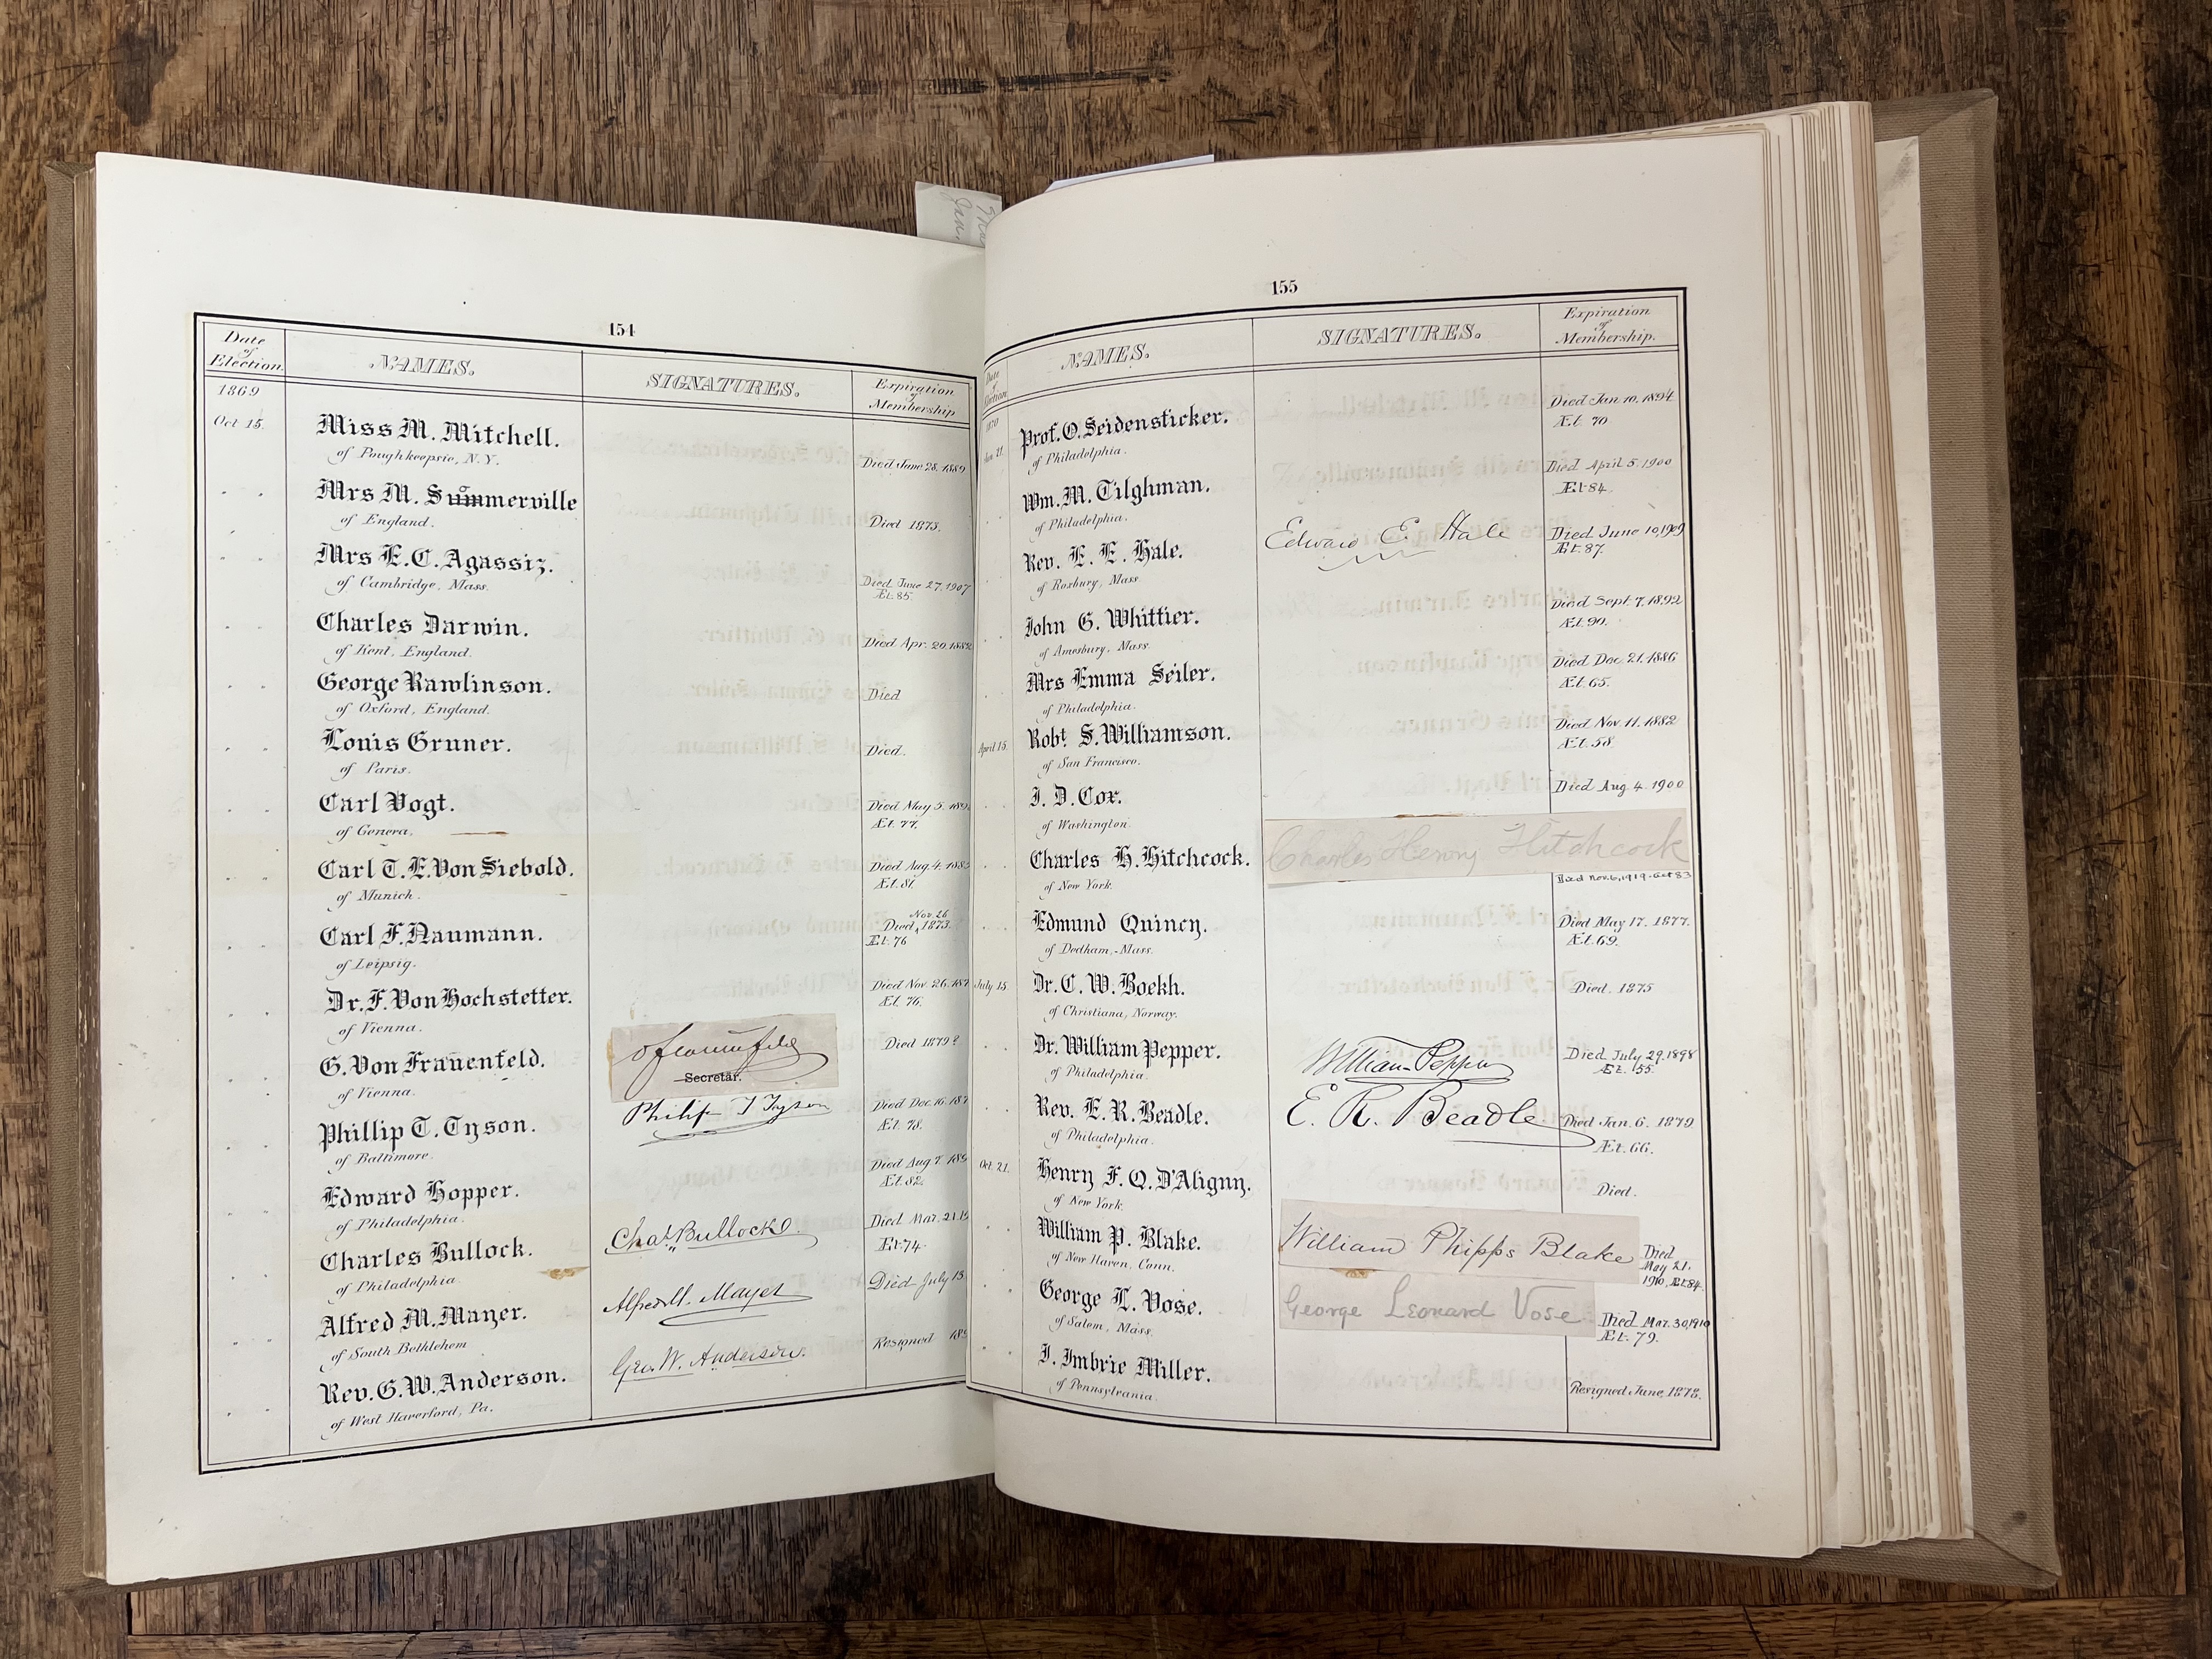 154
Date of Election.
NAMES.
SIGNATURES.
Expiration of Membership
1869
Oct 15. Miss M. Mitchell.
of Poughkeepsie, N.Y.
Died June 28. 1889
Mrs M. Summerville
of England.
Died 1873.
Mrs E. C. Agassiz.
of Cambridge, Mass.
Died June 27. 1907
Æt. 85.
Charles Darwin.
of Kent, England.
Died Apr. 20. 1882
George Rawlinson.
of Oxford, England.
Died
Louis Gruner.
of Paris.
Died.
Carl Vogt.
of Geneva.
Died May 5. 189
Æt. 77.
Carl T. E. Von Siebold.
of Munich.
Died Aug. 4. 188
Æt. 81.
Carl F. Naumann.
of Leipsig.
Nov. 26
Died, 1873.
Æt. 76
Dr. F. Von Hochstetter.
of Vienna.
Died Nov. 26. 187
Æt. 76.
G. Von Frauenfeld.
of Vienna.
Secretär.
Died 1879?
Phillip T. Tyson.
of Baltimore.
Philip T Tyson
Died Dec. 16. 187
Æt. 78.
Edward Hopper.
of Philadelphia.
Died Aug 7. 189
Æt. 82.
Charles Bullock.
of Philadelphia.
Chas. Bullock
Died Mar. 21. 19
Æt. 74.
Alfred M. Mayer.
of South Bethlehem
Alfred M. Mayer
Died July 13.
Rev. G. W. Anderson.
of West Haverford, Pa.
Geo. W. Anderson.
Resigned 189
155
Date of Election.
NAMES.
SIGNATURES.
Expiration of Membership.
1870
Jan. 21. Prof. O. Seidensticker.
of Philadelphia.
Died Jan. 10. 1894
Æt. 70
Wm. M. Tilghman.
of Philadelphia.
Died April 5. 1900
Æt. 84.
Rev. E. E. Hale.
of Roxbury, Mass
Edward E. Hale
Died June 10, 1909
Æt. 87.
John G. Whittier.
of Amesbury, Mass.
Died Sept. 7. 1892
Æt. 90.
Mrs Emma Seiler.
of Philadelphia.
Died Dec. 21. 1886
Æt. 65.
April 15. Robt S. Williamson.
of San Francisco.
Died Nov. 11. 1882
Æt. 58.
J. D. Cox.
of Washington.
Died Aug. 4. 1900
Charles H. Hitchcock.
of New York.
Charles Henry Hitchcock
Died Nov. 6, 1919. aet 83
Edmund Quincy.
of Dedham, Mass.
Died May 17. 1877.
Æt. 69.
July 15. Dr. C. W. Boekh.
of Christiana, Norway.
Died. 1875
Dr. William Pepper.
of Philadelphia.
William Pepper
Died July 29. 1898
Æt. 55.
Rev. E. R. Beadle.
of Philadelphia.
E. R. Beadle
Died Jan. 6. 1879
Æt. 66.
Oct. 21. Henry F. Q. D'Aligny.
of New York.
Died.
William P. Blake.
of New Haven, Conn.
William Phipps Blake
Died May 21. 1910, Æt. 84.
George L. Vose.
of Salem, Mass.
George Leonard Vose
Died Mar. 30, 1910
Æt. 79.
J. Imbrie Miller.
of Pennsylvania.
Resigned June, 1878.